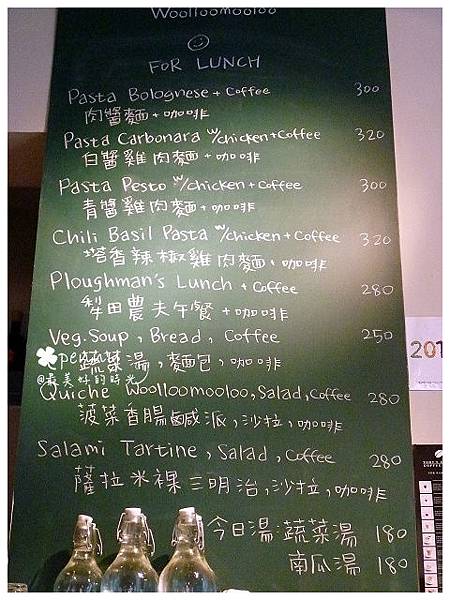 Woolloomooloo
FOR LUNCH
Pasta Bolognese + Coffee 300
肉醬麵 + 咖啡
Pasta Carbonara w/chicken + Coffee 320
白醬雞肉麵 + 咖啡
Pasta Pesto w/chicken + Coffee 300
青醬雞肉麵 + 咖啡
Chili Basil Pasta w/chicken + Coffee 320
塔香辣椒雞肉麵 + 咖啡
Ploughman's Lunch + Coffee 280
犁田農夫午餐 + 咖啡
Veg. Soup, Bread, Coffee 250
蔬菜湯, 麵包, 咖啡
@最美好的時光
Quiche Woolloomooloo, Salad, Coffee 280
菠菜香腸鹹派, 沙拉, 咖啡
Salami Tartine, Salad, Coffee 280
薩拉米裸三明治, 沙拉, 咖啡
今日湯: 蔬菜湯 180
南瓜湯 180
201